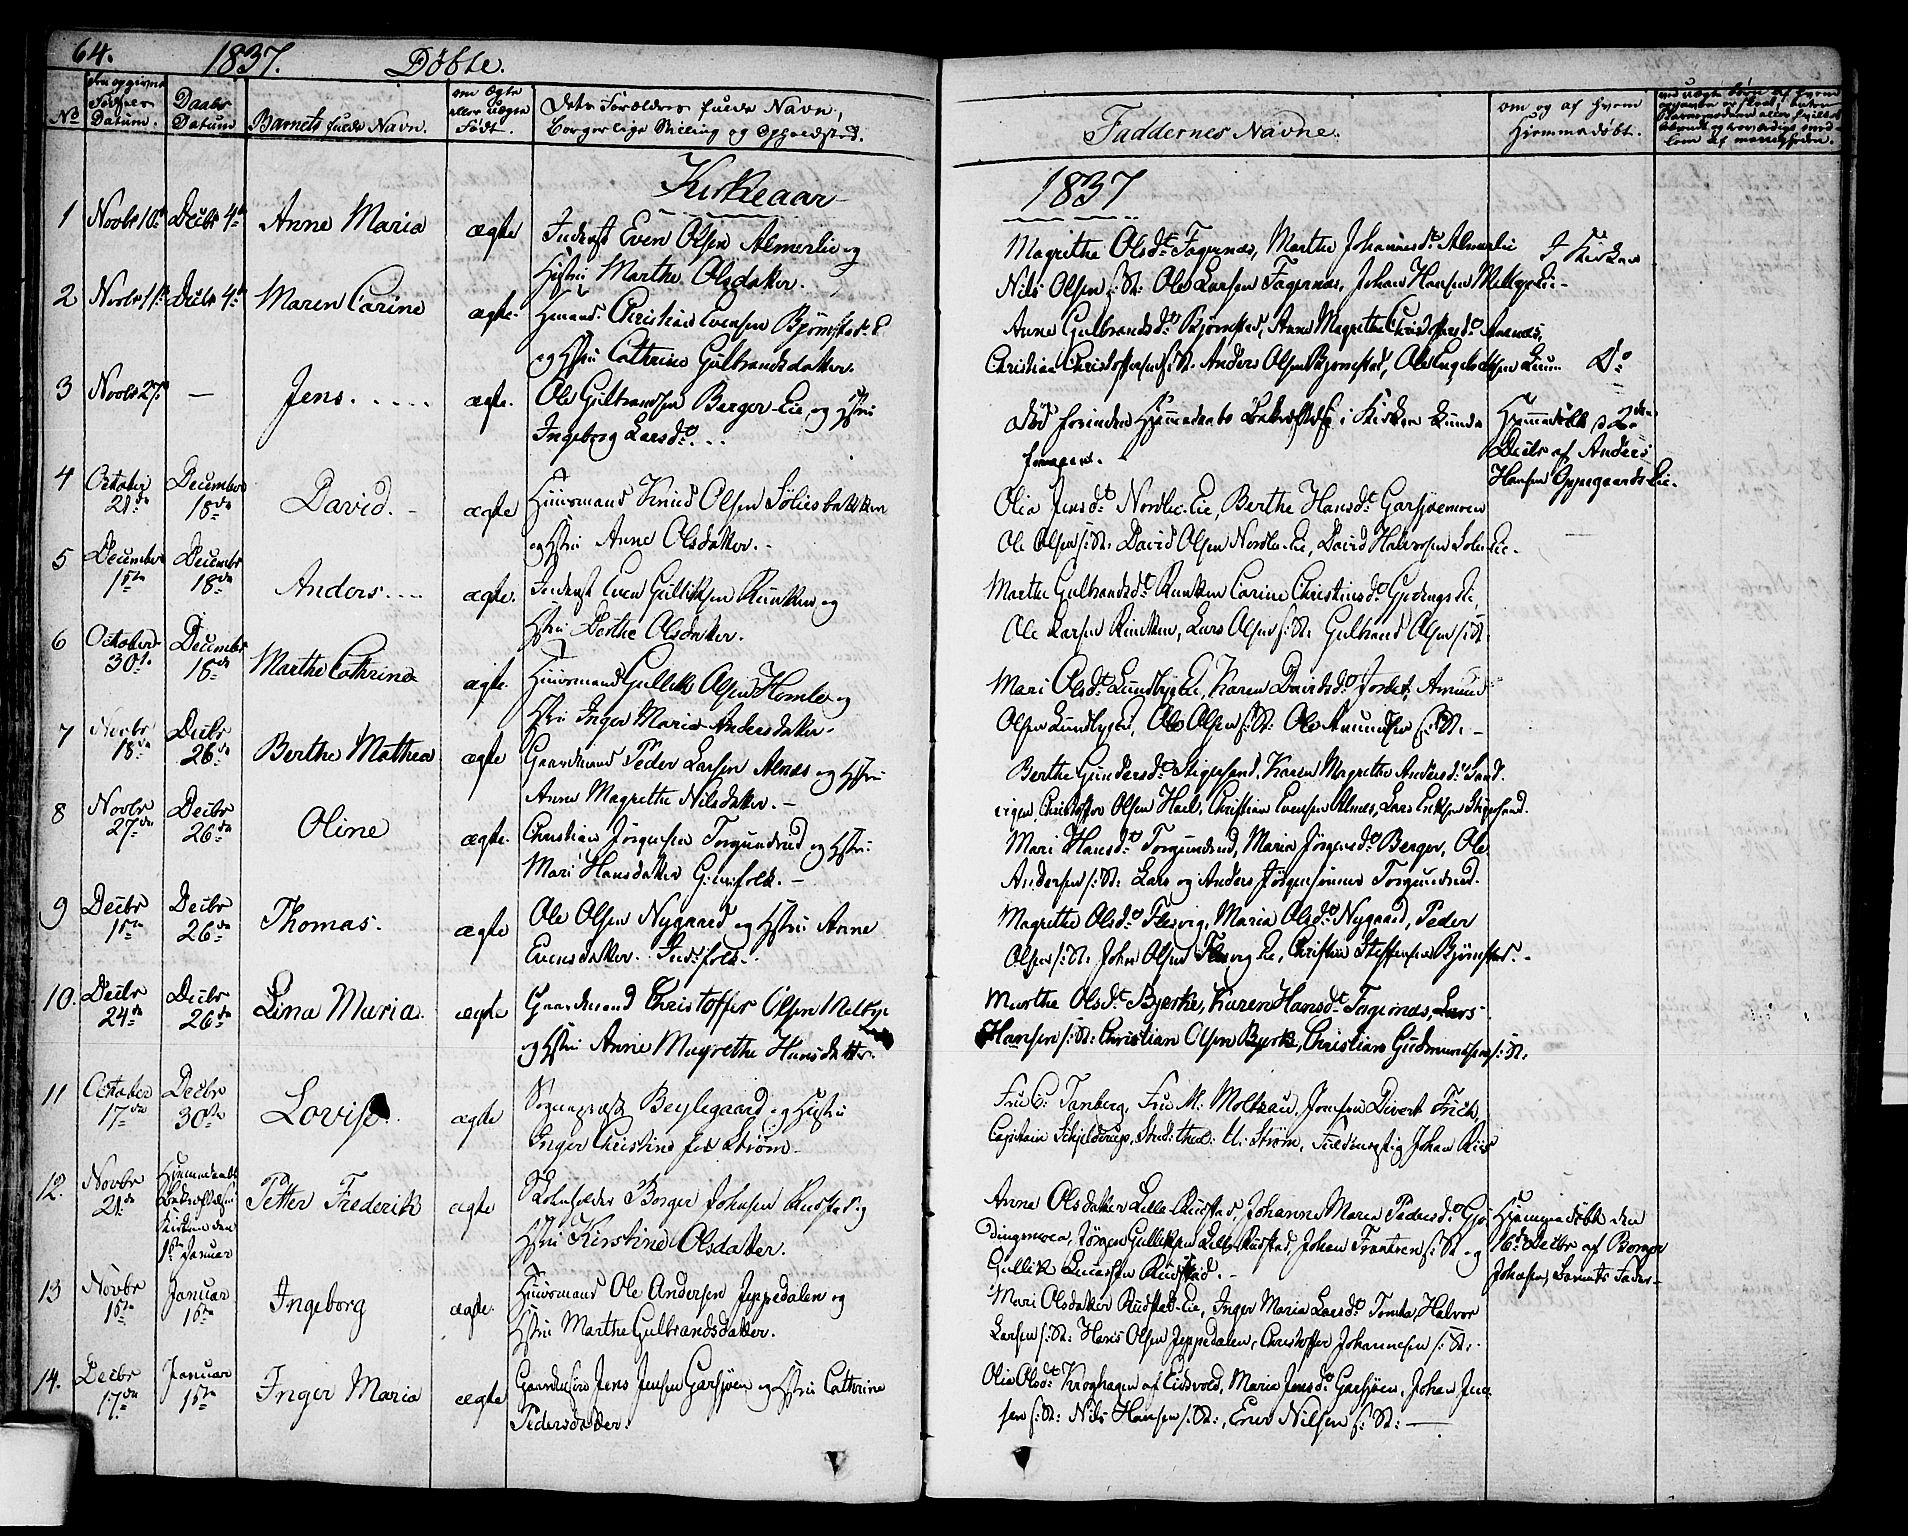 64. 1837. Döbte.
No
Fødsels Datum.
Daabs Datum
Barnets fulde Navn.
om Ægte eller uægte Født.
Forældres fulde Navn,
borgerlige Stilling og Opholdssted.
Faddernes Navne.
om og af hvem
Hjemmedøbt.
Kirkeaar
1837
1 Novbr 10de Decbr 4de Anne Maria ægte Inderst Even Olsen Almerlie og
Hustru Marthe Olsdatter.
Magrethe Olsdt Fagernæs, Marthe Johannesdt Almerlie
Nils Olsen s: St: Ole Larsen Fagernæs, Johan Hansen Melbye Eie
I Kirken
2 Novbr 11te Decbr 4de Maren Carine ægte. Christian Evensen Bjørnstad E.
og Hstru Cathrine Gulbrandsdatter.
Anne Gulbrandsdt Bjørnstad, Anne Magrethe Christophersdt
Christian Christophersen s: St. Anders Olsen Bjørnstad, Ole
Do
3 Novbr 27de — Jens. ægte. Ole Gulbrandsen Berger-Eie, og Hstru
Ingeborg Larsdt.
Død forinden Hjemmedaabs Bekræftelse i Kirken kunde
foregaae.
Hjemmedøbt 2den
Decbr af Anders
Hansen Oppegaards Eie.
4 October 21de December 18de David. ægte Huusmand Knud Olsen Soliesbakken
og Hstru Anne Olsdatter.
Olia Jensdt Nordlie-Eie, Berthe Hansdt Garsjøemoen
Ole Olsen s: St: David Olsen Nordlie-Eie, David Halvorsen Solie Eie.
5 December 1ste Decembr 18de Anders ægte. Inderst Even Gulliksen Runken og
Hstru Berthe Olsdatter.
Marthe Gulbrandsdt Runken Carine Christiansdt
Ole Larsen Runken, Lars Olsen s: St: Gulbrand Olsen s: St:
6 October 30te Decembr 18de Marthe Cathrine ægte. Huusmand Gullik Olsen Homle og
Hstru Inger Maria Andersdatter.
Mari Olsdt Lundbye Eie, Karen Davidsdt Jordet, Amund
Olsen Lundbye E, Ole Olsen s: St: Ole Amundsen s: St:
7 Novbr 18de Decbr 26de Berthe Mathea ægte Gaardmand Peder Larsen Alnæs og Hstru
Anne Magrethe Nilsdatter.
Berthe Gundersdt Stigersand, Karen Magrethe Andersdt Sand.
Christoffer Olsen Hael, Christian Evensen Alnæs, Lars Eriksen Stigersand.
8 Novbr 27de Decbr 26de Oline ægte. Christian Jørgensen Torgundrud og Hstru
Mari Hansdatter
Mari Hansdt Torgundrud, Maria Jørgensdt Berger, Ole
Andersen s: St: Lars og Anders Jørgensønner Torgundrud.
9 Decbr 1ste Decbr 26de Thomas. ægte Ole Olsen Nygaard og Hstru Anne
Evensdatter. Indsfolk.
Magrethe Olsdt Flesvig, Maria Olsdt Nygaard, Peder
Olsen s: St. John Olsen Flesvig Eie, Christian Steffensen Bjørnstad.
10. Decbr 24de Decbr 26de Lina Maria. ægte Gaardmand Christoffer Olsen Melbye
og Hstru Anne Magrethe Hansdatter.
Marthe Olsdt Bjerke, Karen Hansdt Fagernæs, Lars
Hansen s: St: Christian Olsen Bjerke, Christian Gudmundsen s: St:
11 October 17de Decbr 30te Lovise. ægte Sognepræst Beylegaard og Hustru
Inger Christine fød Strøm
Fru Tanberg, Fru M: Moltzau, Jomfru Divert Frich,
Capitain Schjelderup, Stud: theol: U: Strøm, Johan Riis
12. Novbr 21de Hjemmedaabs Bekræftelse i Kirken den 1ste Januar Petter Frederik ægte Skoleholder Borger Johnsen Rustad og
Hstru Kirstine Olsdatter.
Anne Olsdatter Lille-Rustad, Johanne Maria Pedersdt Gjø-
dingmoen, Jørgen Gulliksen Lille Rustad, Johan Frantzen s: St: og
Gullik Rustad.
Hjemmedøbt den
16de Decbr af Borger
Johnsen, Barnets Fader
13 Novbr 1ste Januar 1ste Ingeborg ægte. Huusmand Ole Andersen Jeppedalen og
Hstru Marthe Gulbrandsdatter.
Mari Olsdatter Rustad-Eie, Inger Maria Larsdt Tomta, Halvor
Larsen s: St: Hans Olsen Jeppedalen, Christoffer Johannesen s: St:
14. Decbr 17de Januar 15de Inger Maria ægte Jens Jensen Garsjøen og Hstru Cathrine
Pedersdatter.
Olia Olsdt Kroghagen af Eidsvold, Maria Jensdt Garsjøen, Johan Jen-
sen s: St: Nils Hansen s: St:, Even Nilsen s: St: